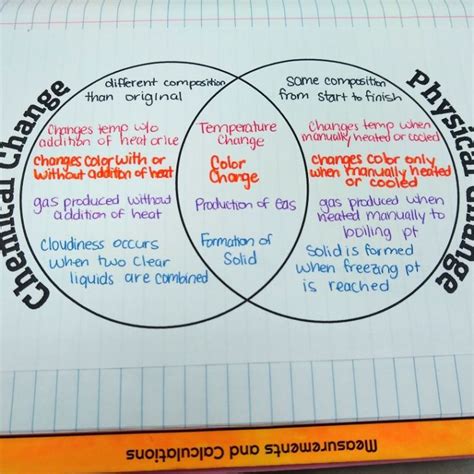 Chemical Change
different composition
than original
Changes temp w/o
addition of heat or ice
Changes color with or
without addition of heat
gas produced without
addition of heat
Cloudiness occurs
when two clear
liquids are combined
Temperature
Change
Color
Change
Production of Gas
Formation of
Solid
Physical Change
Same composition
from start to finish
Changes temp when
manually heated or cooled
changes color only
when manually heated
or cooled
gas produced when
heated manually to
boiling pt
Solid is formed
when freezing pt
is reached
Measurements and Calculations